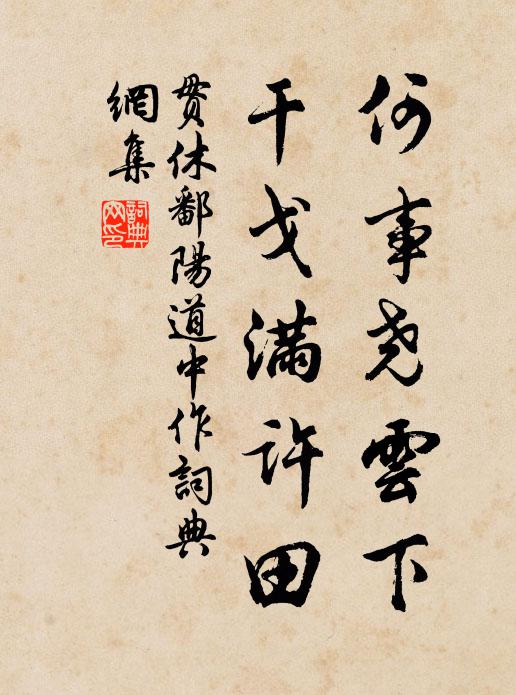 何事尧雲下
干戈滿許田
贯休鄱陽道中作詞典
網集
詞典
网印